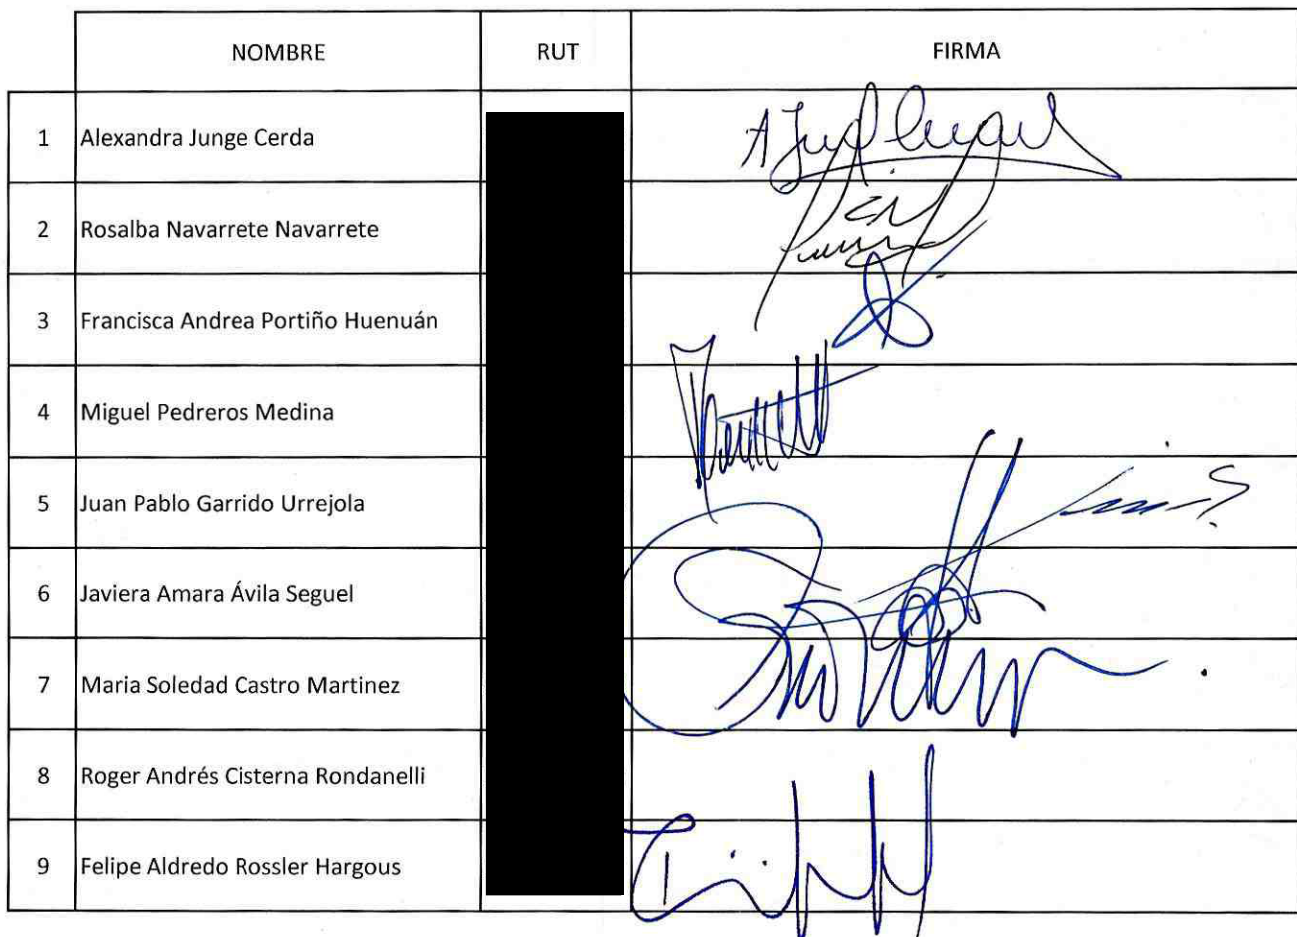 NOMBRE RUT FIRMA
1 Alexandra Junge Cerda
2 Rosalba Navarrete Navarrete
3 Francisca Andrea Portiño Huenuán
4 Miguel Pedreros Medina
5 Juan Pablo Garrido Urrejola
6 Javiera Amara Ávila Seguel
7 Maria Soledad Castro Martinez
8 Roger Andrés Cisterna Rondanelli
9 Felipe Aldredo Rossler Hargous